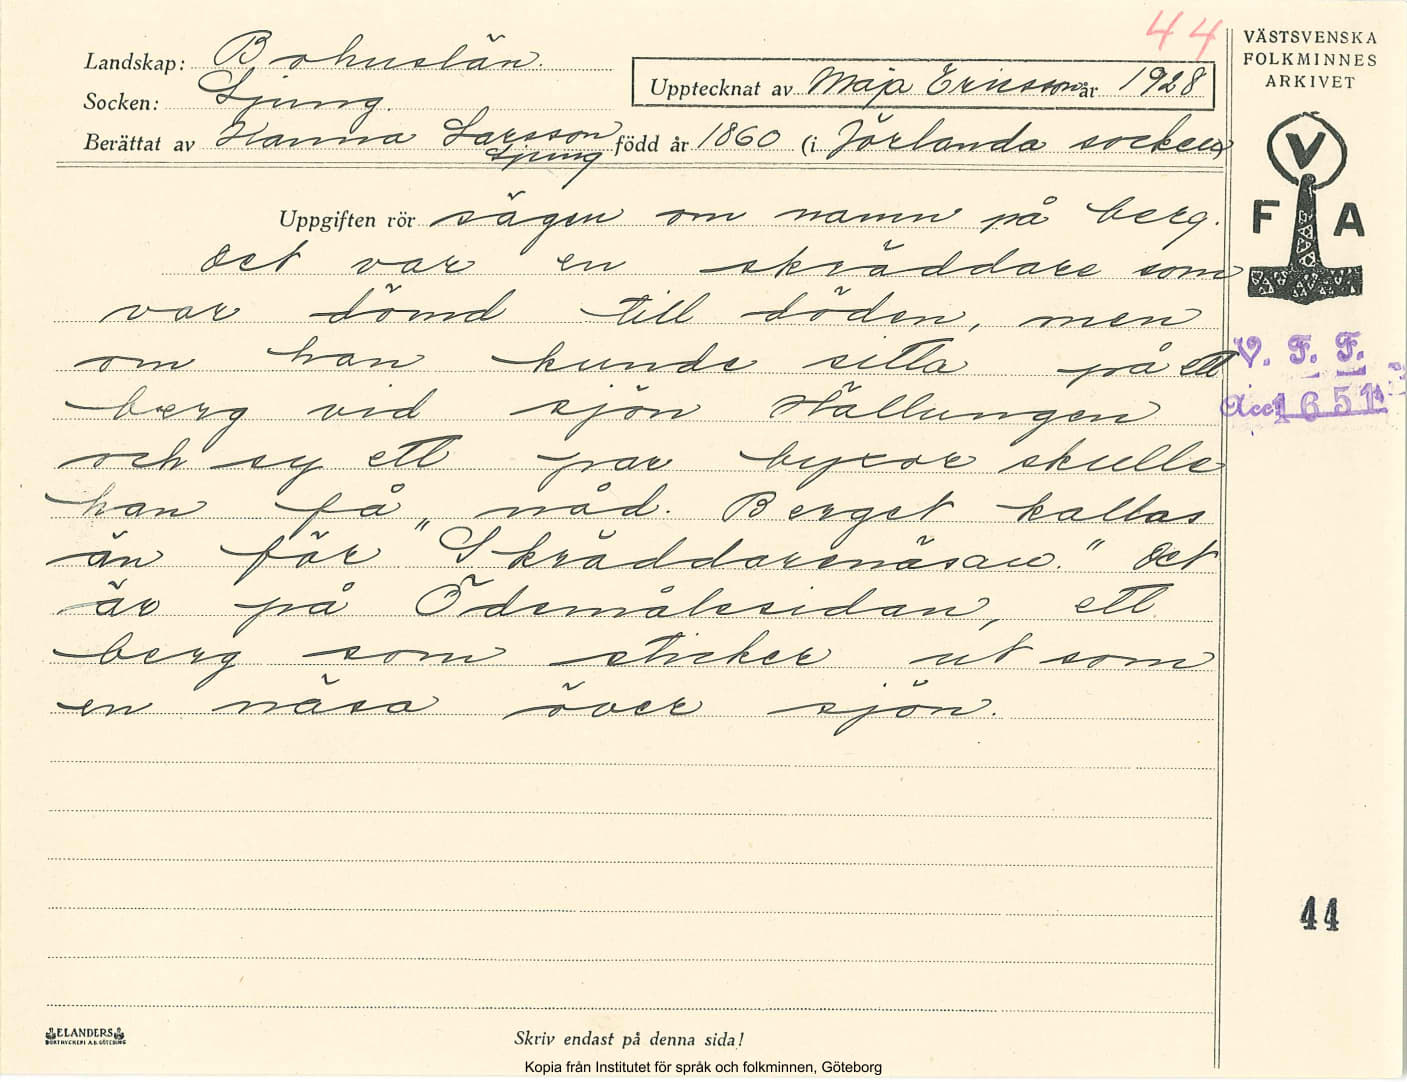 44
VÄSTSVENSKA
FOLKMINNES
ARKIVET
Landskap: Bohuslän.
Upptecknat av Maja Ericsson år 1928
Socken: Ljung.
Berättat av Hanna Larsson född år 1860 (i Jörlanda socken)
Ljung
F V A
Uppgiften rör sägen om namn på berg.
Det var en skräddare som
var dömd till döden, men
om han kunde sitta på ett
V. F. F.
berg vid sjön Hällungen
Acc. 1651
och sy ett par byxor skulle
han få nåd. Berget kallas
än för "Skräddarenäsan." Det
är på Ödsmålssidan, ett
berg som sticker ut som
en näsa över sjön.
44
ELANDERS
BOKTRYCKERI A.B. GÖTEBORG
Skriv endast på denna sida!
Kopia från Institutet för språk och folkminnen, Göteborg